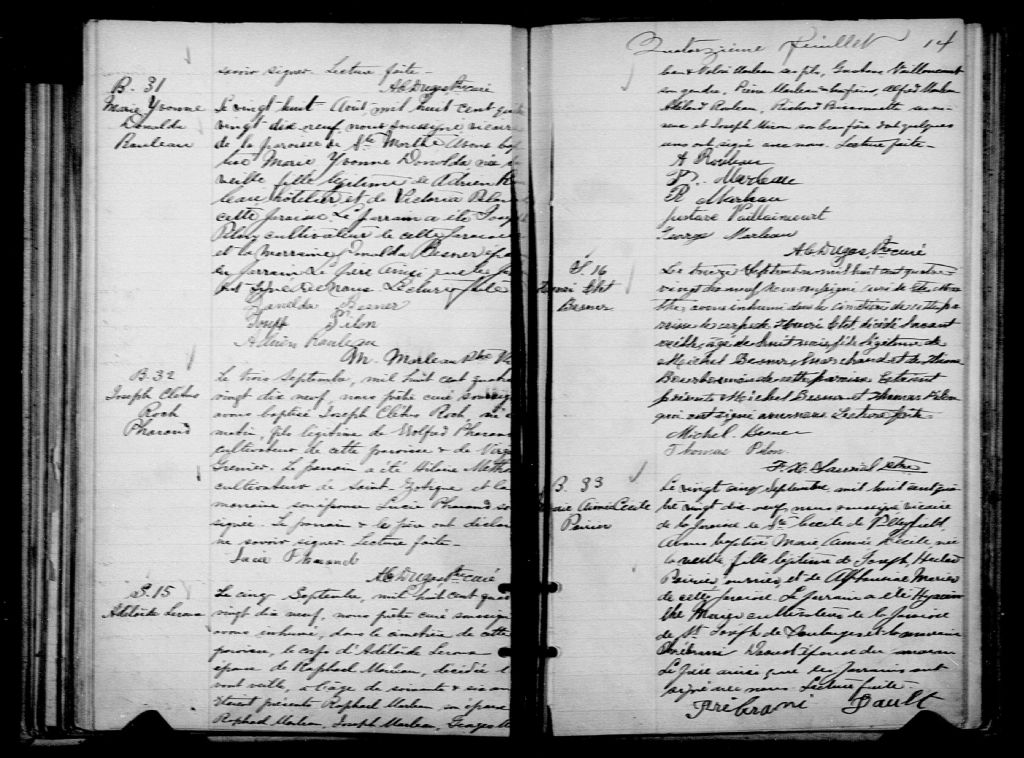 savoir signer. Lecture faite -
AC Dugas Ptre curé
B. 31
Marie Yvonne
Donalda
Rouleau
Le vingt huit Août, mil huit cent quatre
vingt dix neuf, nous soussigné vicaire
de la paroisse de Ste Marthe Avons bap
tisé Marie Yvonne Donalda née la
veille fille légitime de Adrien Rou
leau hôtelier et de Victoria Pilon de
cette paroisse. Le parrain a été Joseph
Pilon cultivateur de cette paroisse
et la marraine Donalda Besner épouse
du parrain Le père ainsi que les par
ont signé avec nous. Lecture faite
Danelda Besner
Joseph Pilon
Adrien Rouleau
M. Marleau Ptre Vic
B. 32
Joseph Cléthus
Roch
Pharand
Le trois Septembre, mil huit cent quatre
vingt dix neuf, nous prêtre curé soussigné
avons baptisé Joseph Cléthus Roch, né ce
matin, fils légitime de Wolfrid Pharand
cultivateur de cette paroisse & de Virginie
Grenier. Le parrain a été Hilaire
cultivateur de Saint Zotique et la
marraine, son épouse Lucie Pharand sous
signée. Le parrain & le père ont déclaré
ne savoir signer. Lecture faite -
Lucie Pharand
AC Dugas Ptre curé
S. 15
Adélaïde
Le cinq Septembre, mil huit cent quatre
vingt dix neuf, nous prêtre curé soussigné
avons inhumé, dans le cimetière de cette
paroisse, le corps d'Adélaïde
épouse de Raphaël Marleau, décédée l'a
vant veille, à l'âge de soixante & six ans
Etaient présents Raphaël Marleau, son époux
Raphaël Marleau, Joseph Marleau, Georges M
Quatorzième feuillet 14
Marleau ses fils, Gustave Vaillancourt
son gendre, Pierre Marleau beau frère, Alfred Marleau
Rouleau, Richard Bissonnette ne
veux et Joseph Miron son beau frère dont quelques
uns ont signé avec nous. Lecture faite -
A Rouleau
P. Marleau
R Marleau
Gustave Vaillancourt
George Marleau
AC Dugas Ptre curé
S. 16
Henri Eliot
Besner
Le treize Septembre mil huit cent quatre
vingt dix neuf Nous soussigné curé de Ste Mar
the, avons inhumé dans le cimetière de cette pa
roisse le corps de Henri Eliot décédé l'avant
veille, âgé de huit mois, fils légitime de
Michel Besner, marchand et de
de cette paroisse. Etaient
présents Michel Besner et Thomas Pilon
qui ont signé avec nous Lecture faite -
Michel Besner
Thomas Pilon
B. 33
Marie Aimée Cécile
Poirier
Le vingt cinq Septembre, mil huit cent qua
tre vingt dix neuf nous soussigné vicaire
de la paroisse de Ste Cécile de Valleyfield
Avons baptisé Marie Aimée Cécile, née
la veille, fille légitime de Joseph
Poirier ouvrier et de Alphonsine
de cette paroisse. Le parrain a été Hyacin
the cultivateur de la paroisse
de St Joseph de Soulanges et la marraine
Daoust épouse du parrain
Le père ainsi que les parrains ont
signé avec nous Lecture faite -
Dault